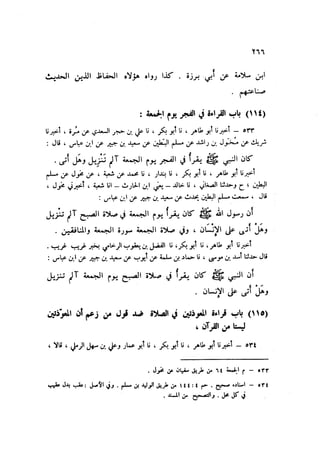 ٢٦٦
ابن سلامة عن أبي برزة . كذا رواه هؤلاء الحفاظ الذين الحديث
صناعتهم .
(١١٤) باب القراءة في الفجر يوم الجمعة :
٥٣٣ – أخبرنا أبو طاهر ، نا أبو بكر ، نا علي بن حجر السعدي عن مرة ، أخبرنا
شريك عن مخول بن راشد عن مسلم البطين عن سعيد بن جبير عن ابن عباس ، قال :
كان النبي ﷺ يقرأ في الفجر يوم الجمعة آلم تنزيل وهل أتى .
أخبرنا أبو طاهر ، نا أبو بكر ، نا بندار ، نا محمد عن شعبة ، عن مخول عن مسلم
البطين ؛ ح وحدثنا الصنعاني ، نا خالد – يعني ابن الحارث – نا شعبة ، أخبرني مخول ،
قال : سمعت مسلم البطين يحدث عن سعيد بن جبير عن ابن عباس :
أن رسول الله ﷺ كان يقرأ يوم الجمعة في صلاة الصبح آلم تنزيل
وهل أتى على الإنسان ، وفي صلاة الجمعة سورة الجمعة والمنافقين .
أخبرنا أبو طاهر ، نا أبو بكر ، نا الفضل بن يعقوب الرخامي بخبر غريب غريب ،
قال حدثنا أسد بن موسى ، نا حماد بن سلمة عن أيوب عن سعيد بن جبير عن ابن عباس :
أن النبي ﷺ كان يقرأ في صلاة الصبح يوم الجمعة آلم تنزيل
وهل أتى على الإنسان .
(١١٥) باب قراءة المعوذتين في الصلاة ضد قول من زعم أن المعوذتين
ليستا من القرآن ،
٥٣٤ – أخبرنا أبو طاهر ، نا أبو بكر ، نا أبو عمار وعلي بن سهل الرملي ، قالا ،
٥٣٣ – م الجمعة ٦٤ من طريق سفيان عن مخول .
٥٣٤ – إسناده صحيح . حم ٤ : ١٤٤ من طريق الوليد بن مسلم . وفي الأصل : عقب بدل عقبة
في كل محل . والتصحيح من المسند .